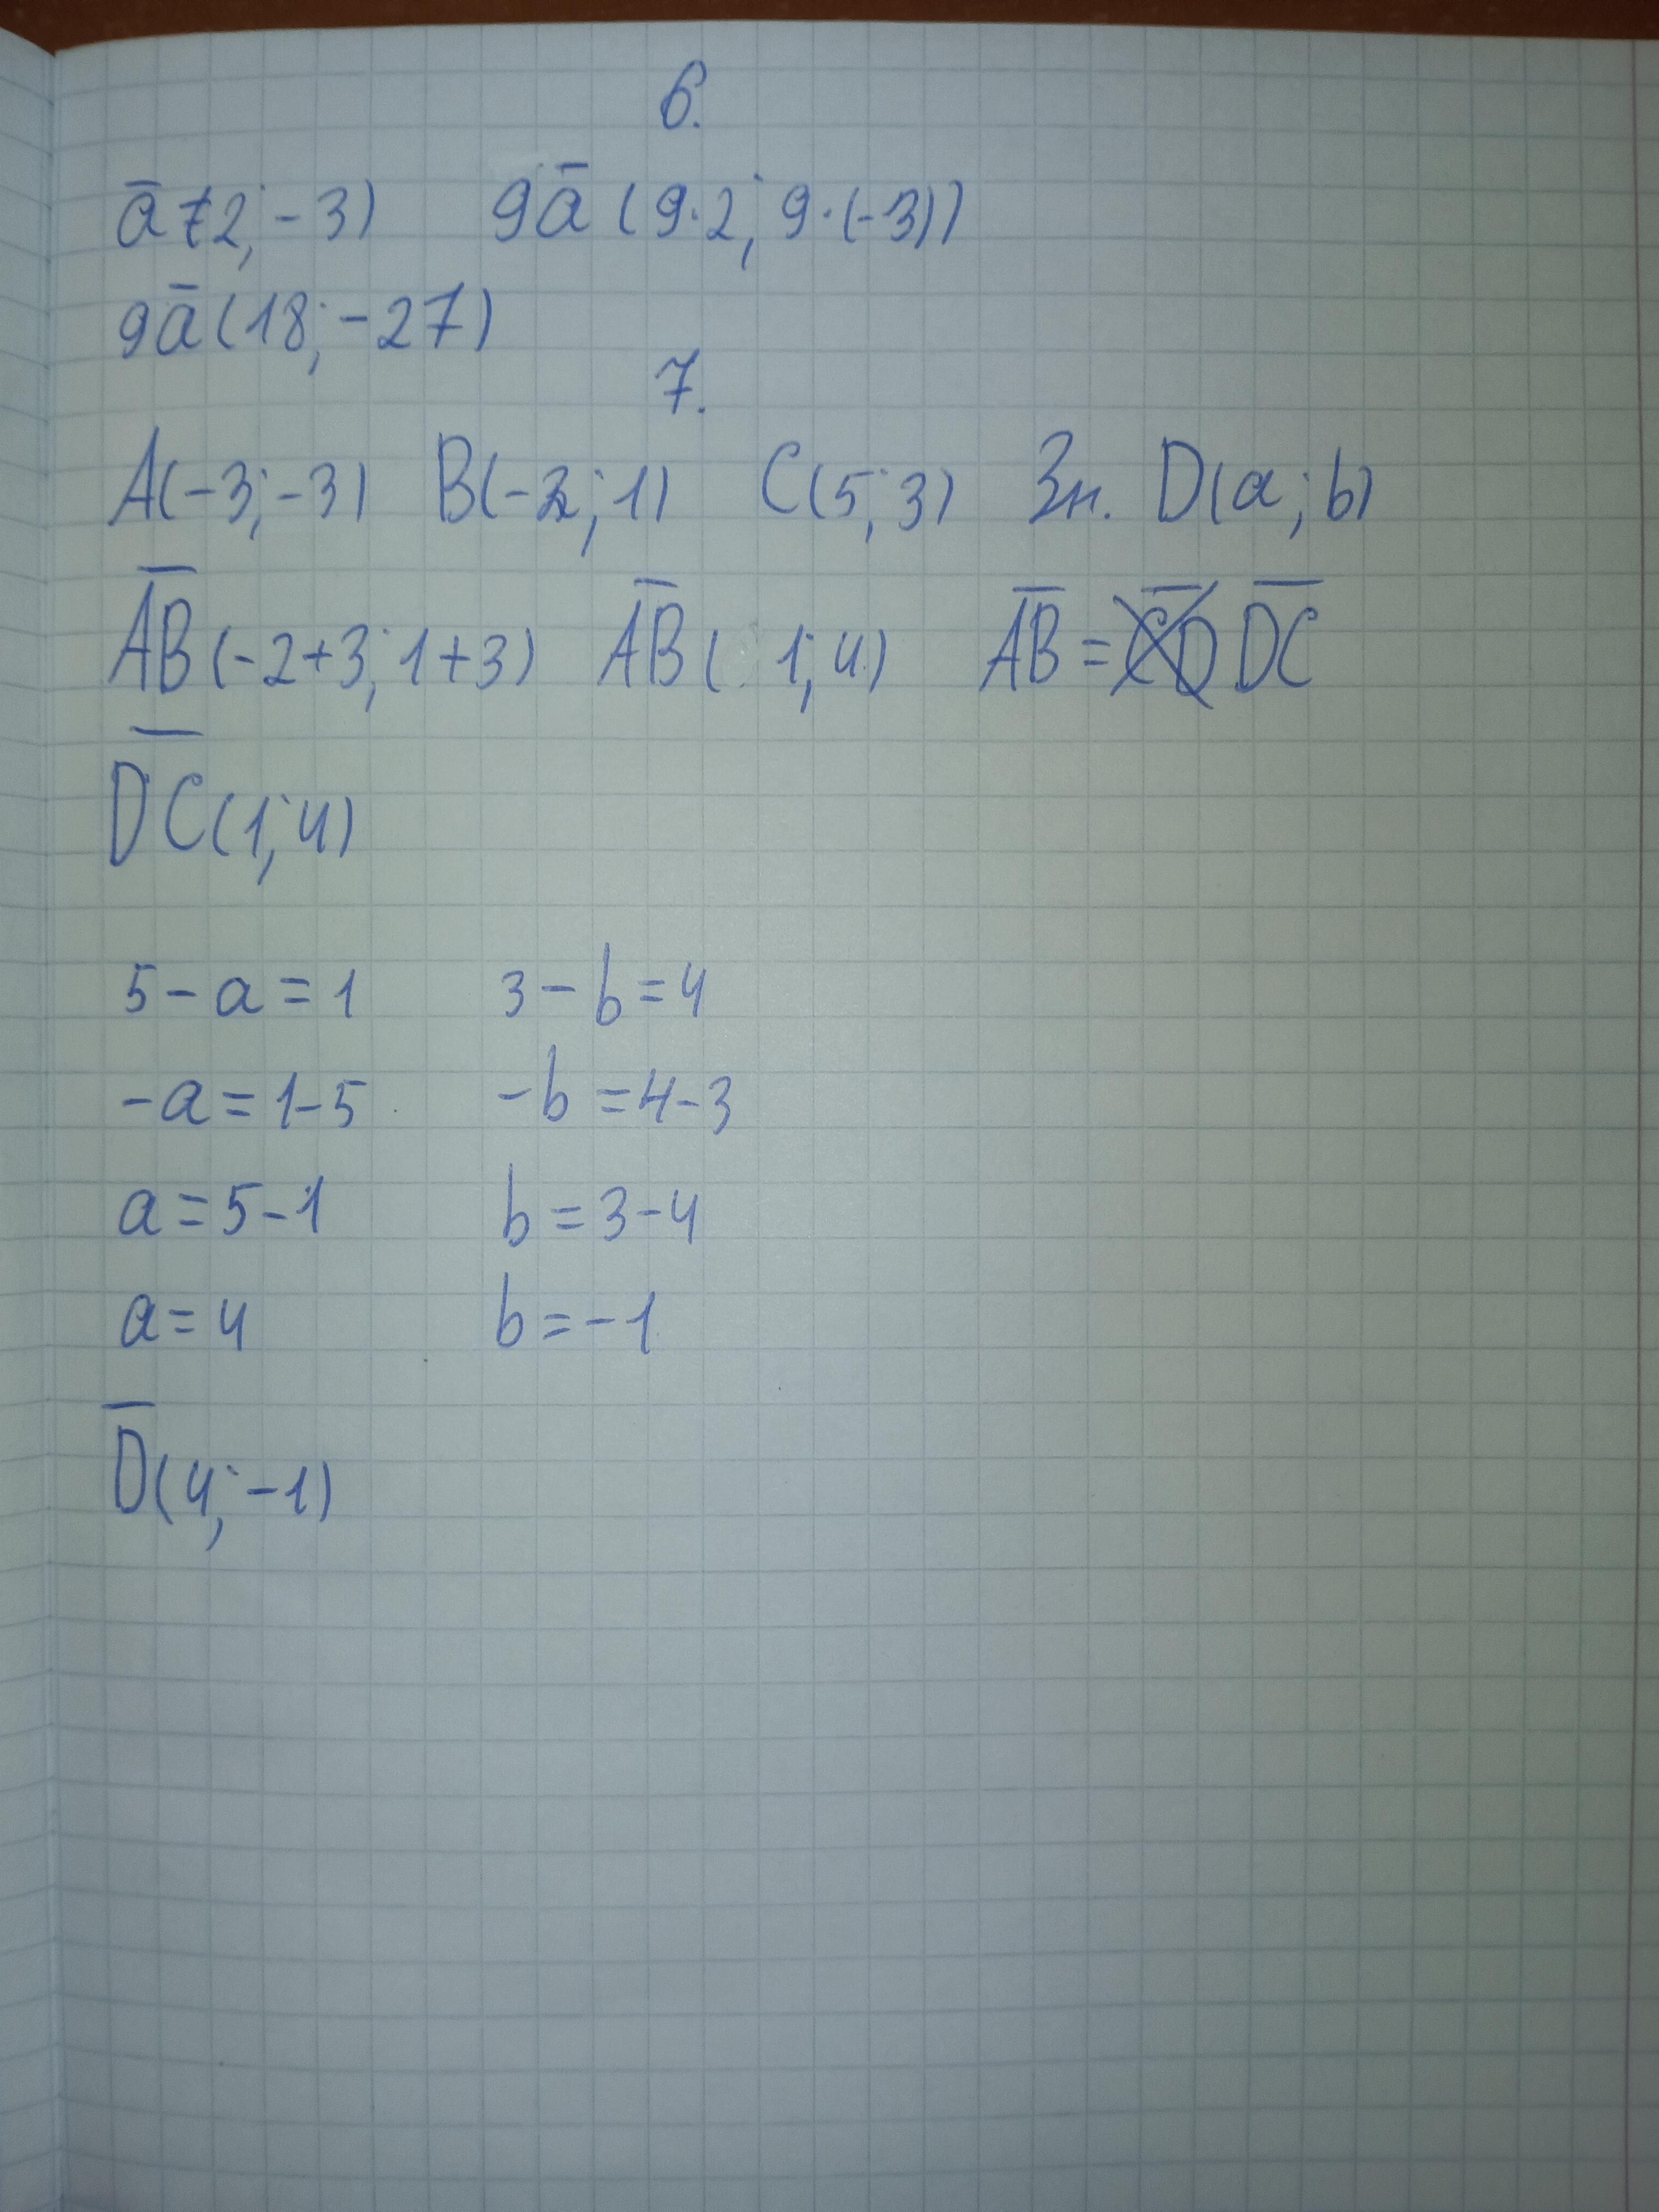 6.
ā(2; -3) 9ā(9·2; 9·(-3))
9ā(18; -27)
7.
A(-3; -3) B(-2; 1) C(5; 3) Зн. D(a; b)
A̅B̅(-2+3; 1+3) A̅B̅(1; 4) A̅B̅ = D̅C̅
D̅C̅(1; 4)
5 - a = 1 3 - b = 4
-a = 1-5 -b = 4-3
a = 5-1 b = 3-4
a = 4 b = -1
D̅(4; -1)